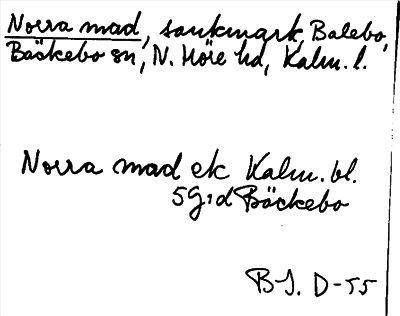 Norra mad, sankmark, Balebo,
Bäckebo sn, N. Möre hd, Kalm. l.
Norra mad ek Kalm. bl.
5G1d Bäckebo
B-J. D-55